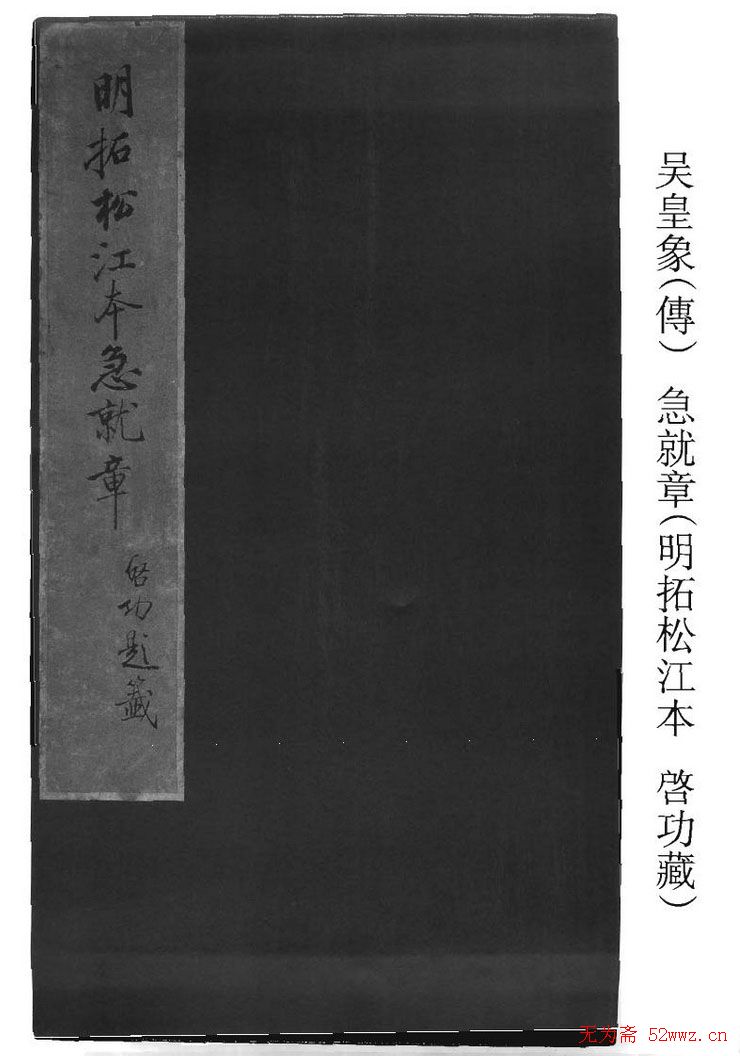 吴皇象(傳) 急就章(明拓松江本 啓功藏)
明拓松江本急就章
啓功題籤
无为斋 52wwz.cn